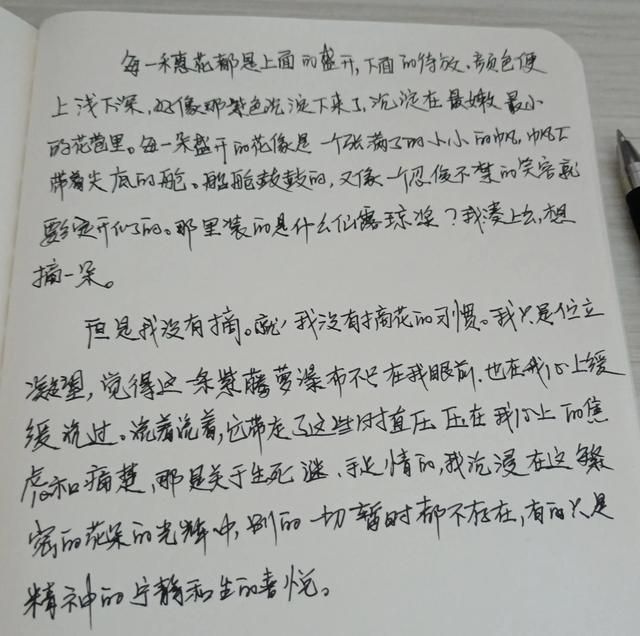 每一朵穗花都是上面的盛开,下面的待放。颜色便
上浅下深,好像那紫色沉淀下来了,沉淀在最嫩最小
的花苞里。每一朵盛开的花像是一个张满了的小小的帆,帆下
带着尖底的舱。船舱鼓鼓的,又像一个忍俊不禁的笑容就
要绽开似的。那里装的是什么仙露琼浆?我凑上去,想
摘一朵。
但是我没有摘。我没有摘花的习惯。我只是伫立
凝望,觉得这一条紫藤萝瀑布不只在我眼前,也在我心上缓
缓流过。流着流着,它带走了这些时直压压在我心上的焦
虑和痛楚,那是关于生死谜、手足情的,我沉浸在这繁
密的花朵的光辉中,别的一切暂时都不存在,有的只是
精神的宁静和生的喜悦。